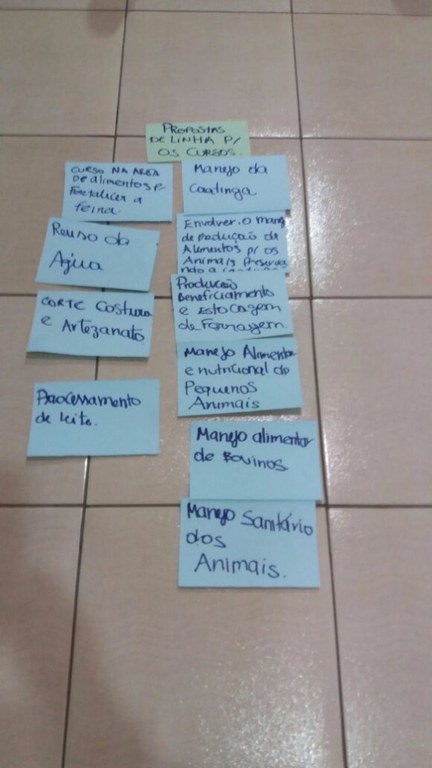 PROPOSTAS
DE LINHA P/
OS CURSOS.
CURSO NA AREA
DE alimentos p/
Fortalecer a
feira.
Reuso da
Agua
CORTE Costura
e Artezanato
Processamento
de leite.
Manejo da
Caatinga
Envolver o
de produção de
Alimentos p/ os
Animais
Produção
Beneficiamento
e estocagem
de Forragem.
Manejo Alimentar
e nutricional de
Pequenos
Animais
Manejo alimentar
de Bovinos
Manejo Sanitário
dos
Animais.